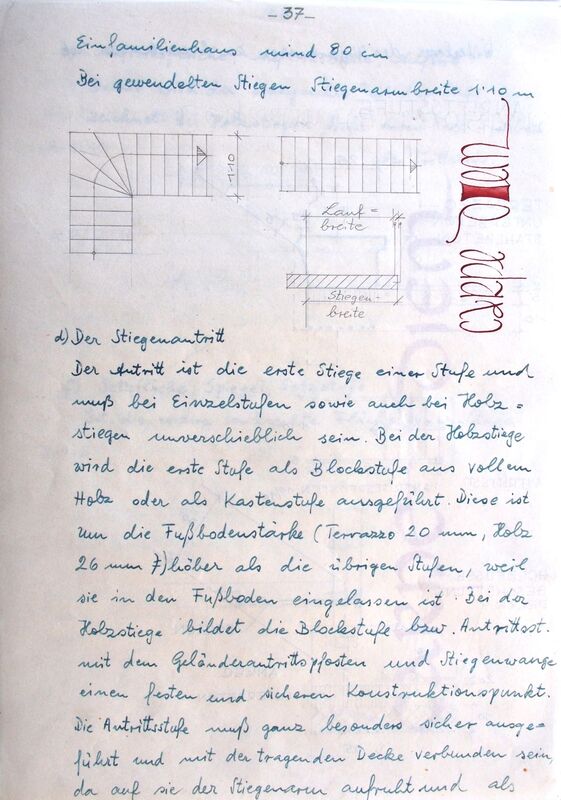 -37-
Einfamilienhaus mind 80 cm
Bei gewendelten Stiegen Stiegenarmbreite 1·10 m
1·10
Lauf=
breite
Stiegen-
breite
carpe Diem
d) Der Stiegenantritt
Der Antritt ist die erste Stiege einer Stufe und
muß bei Einzelstufen sowie auch bei Holz=
stiegen unverschieblich sein. Bei der Holzstiege
wird die erste Stufe als Blockstufe aus vollem
Holz oder als Kastenstufe ausgeführt. Diese ist
um die Fußbodenstärke (Terrazzo 20 mm, Holz
26 mm) höher als die übrigen Stufen, weil
sie in den Fußboden eingelassen ist. Bei der
Holzstiege bildet die Blockstufe bzw. Antrittsst.
mit dem Geländerantrittspfosten und Stiegenwange
einen festen und sicheren Konstruktionspunkt.
Die Antrittsstufe muß ganz besonders sicher ausge=
führt und mit der tragenden Decke verbunden sein,
da auf sie der Stiegenarm aufruht und als